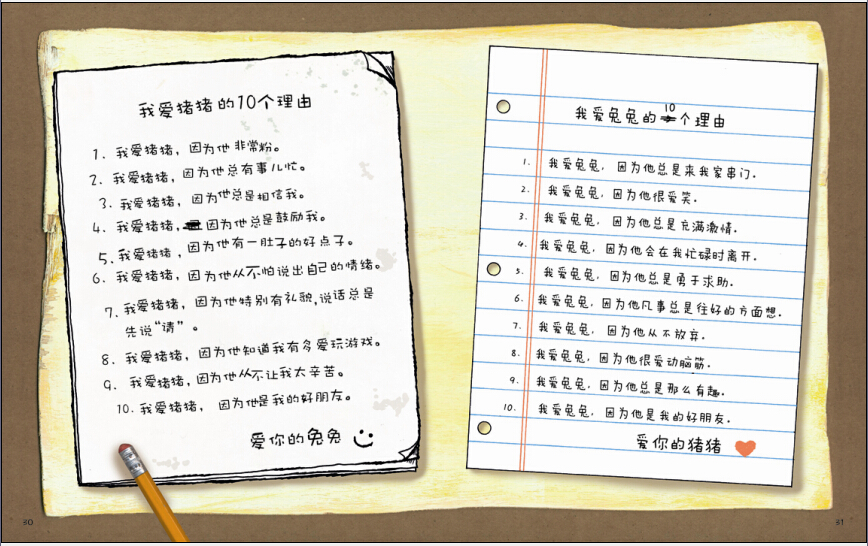 我爱猪猪的10个理由
1. 我爱猪猪，因为他非常粉。
2. 我爱猪猪，因为他总有事儿忙。
3. 我爱猪猪，因为他总是相信我。
4. 我爱猪猪，因为他总是鼓励我。
5. 我爱猪猪，因为他有一肚子的好点子。
6. 我爱猪猪，因为他从不怕说出自己的情绪。
7. 我爱猪猪，因为他特别有礼貌，说话总是
先说“请”。
8. 我爱猪猪，因为他知道我有多爱玩游戏。
9. 我爱猪猪，因为他从不让我太辛苦。
10. 我爱猪猪，因为他是我的好朋友。
爱你的兔兔
30
我爱兔兔的10个理由
1. 我爱兔兔，因为他总是来我家串门。
2. 我爱兔兔，因为他很爱笑。
3. 我爱兔兔，因为他总是充满激情。
4. 我爱兔兔，因为他会在我忙碌时离开。
5. 我爱兔兔，因为他总是勇于求助。
6. 我爱兔兔，因为他凡事总是往好的方面想。
7. 我爱兔兔，因为他从不放弃。
8. 我爱兔兔，因为他很爱动脑筋。
9. 我爱兔兔，因为他总是那么有趣。
10. 我爱兔兔，因为他是我的好朋友。
爱你的猪猪
31